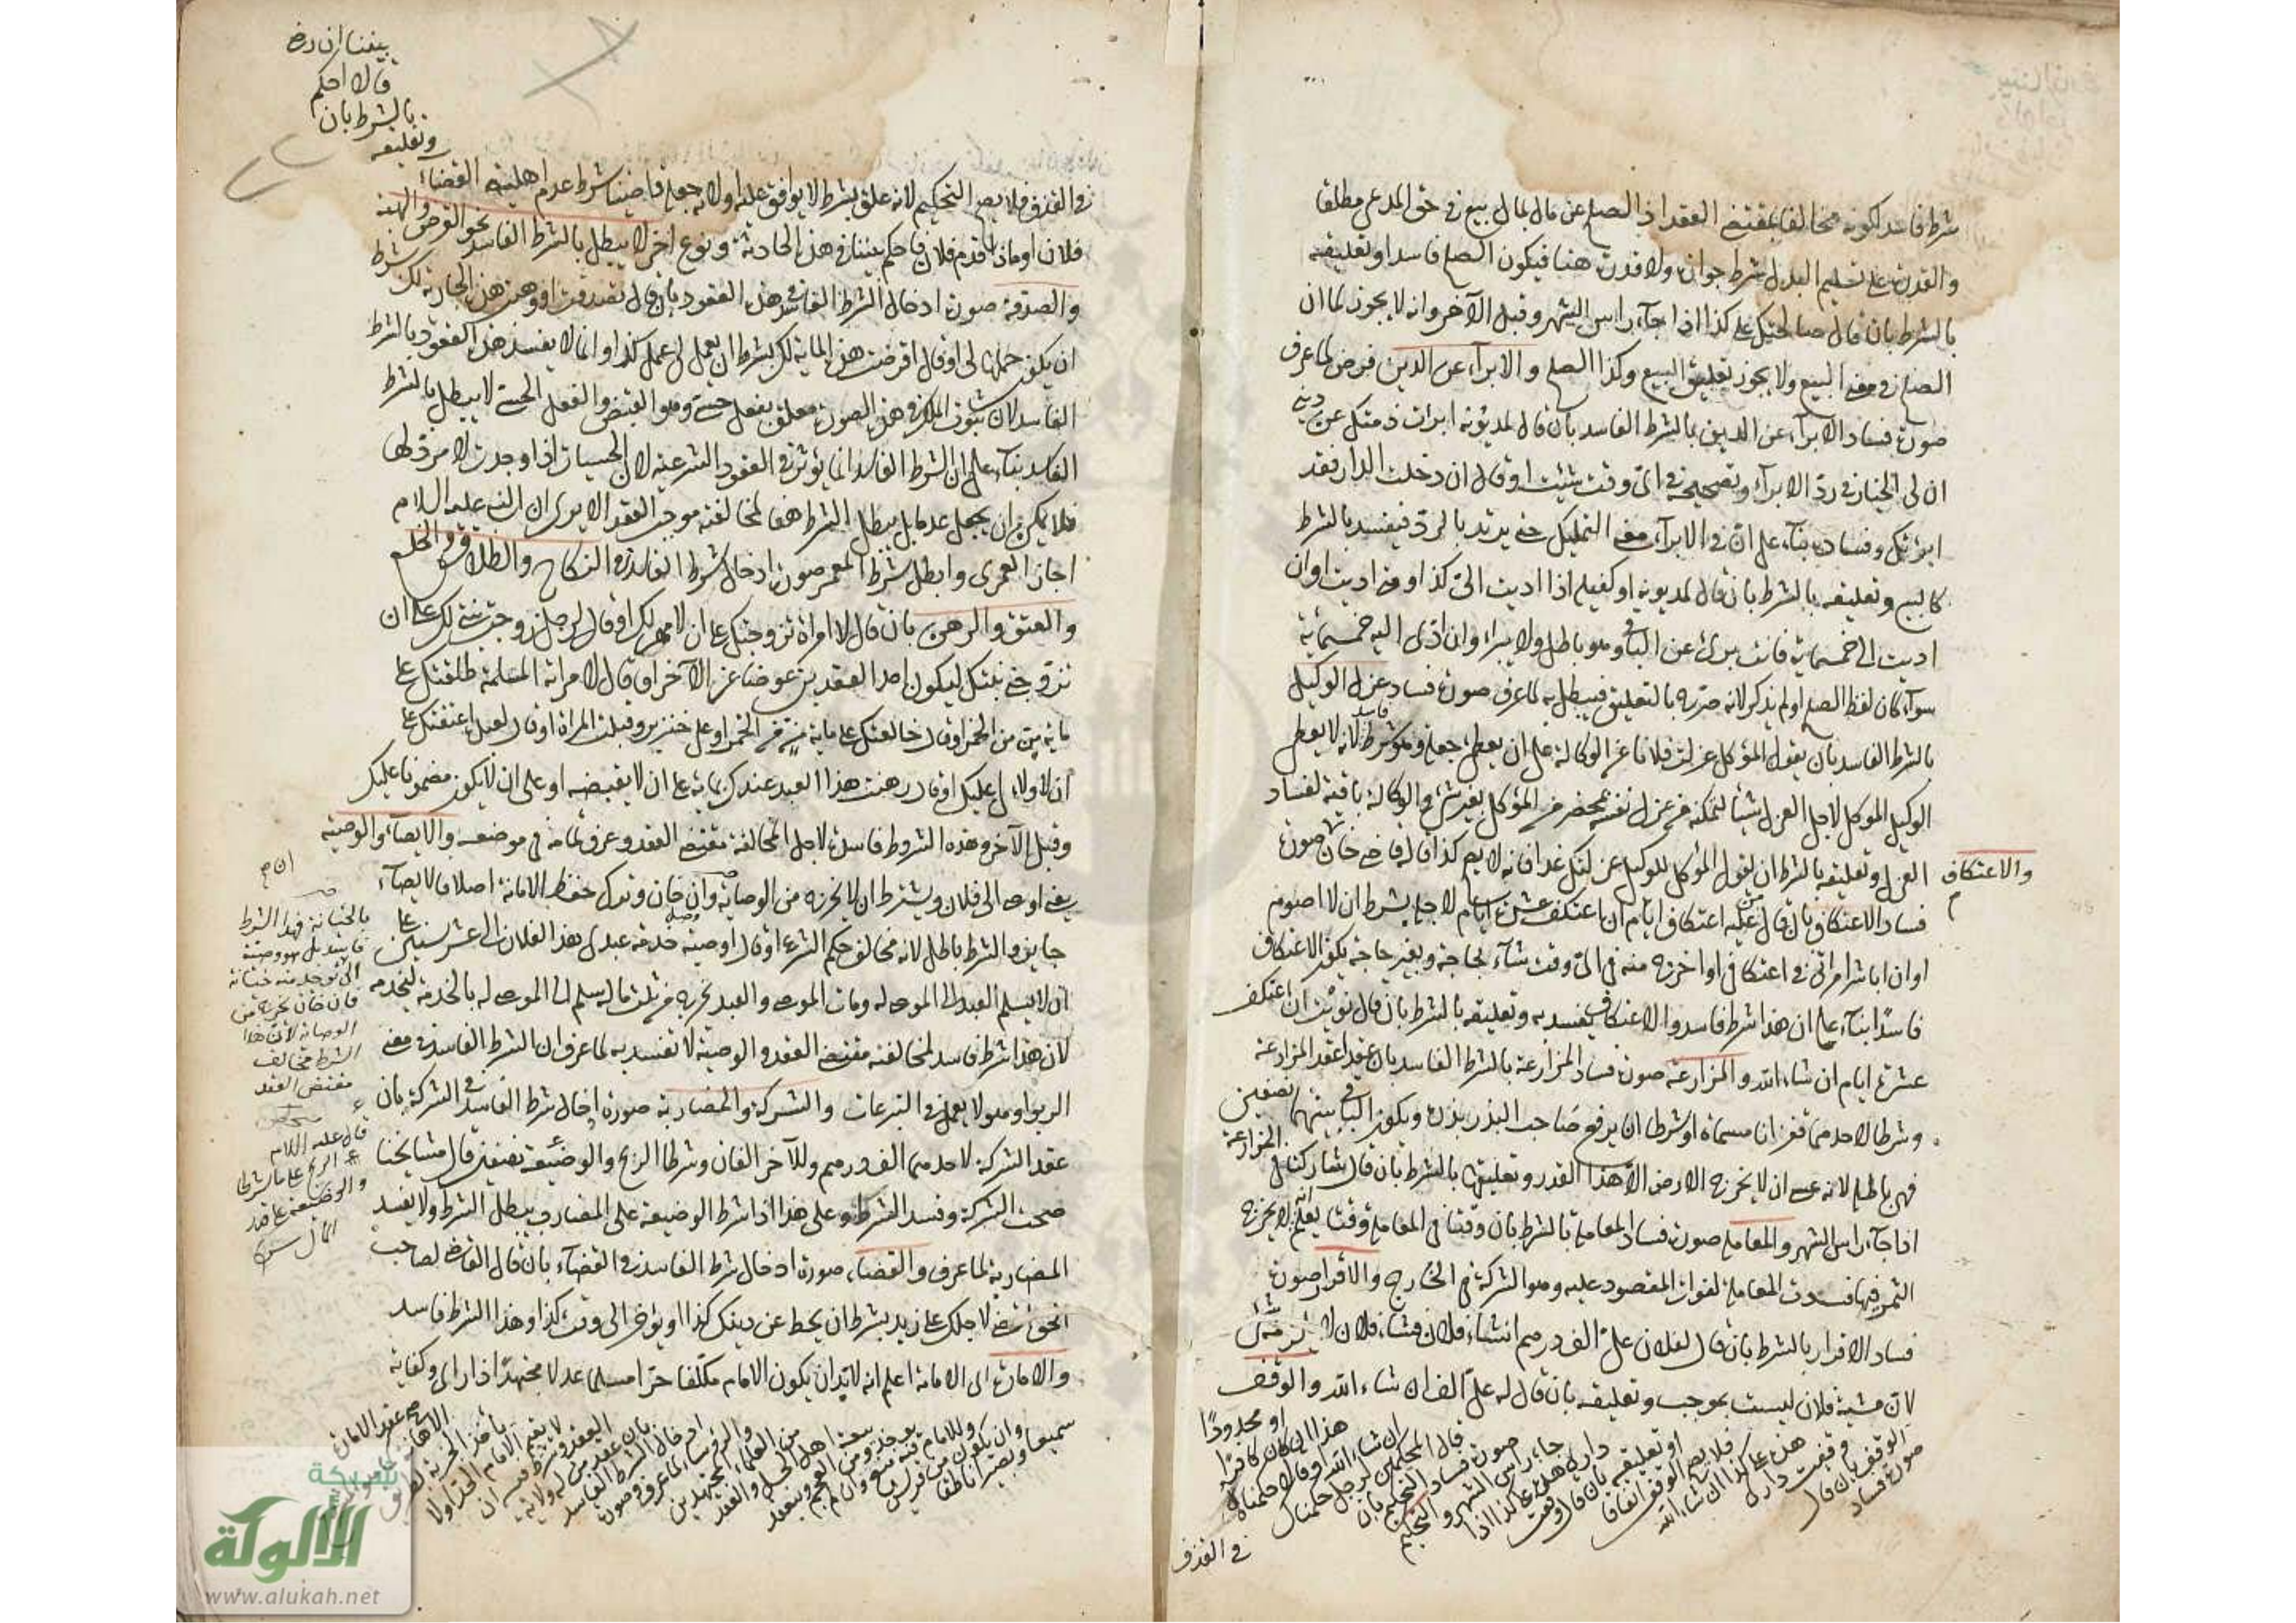 شرط فاسد لكونه مخالفا لمقتضى العقد اذ الصلح عن مال بمال بيع في حق المدعي مطلقا
والقدرة على تسليم البدل شرط جوازه ولا قدرة هنا فيكون الصلح فاسدا وتعليقه
بالشرط بان قال صالحتك على كذا اذا جاء راس الشهر وقبل الآخر وانه لا يجوز لما ان
الصلح في معنى البيع ولا يجوز تعليق البيع وكذا الصلح والابراء عن الدين فرض لما عرف
صورة فساد الابراء عن الدين بالشرط الفاسد بان قال لمديونه ابرات ذمتك عن ديني
ان لي الخيار في رد الابراء وتصحيحه في اي وقت شئت او قال ان دخلت الدار فقد
ابرئتك وفساده بناء على ان في الابراء معنى التمليك حتى يرتد بالرد فيفسد بالشرط
كالبيع وتعليقه بالشرط بان قال لمديونه او كفيله اذا اديت الي كذا او متى اديت او ان
اديت الي خمسمائة فانت برئ عن الباقي وهو باطل ولا يبراء وان ادى اليه خمسمائة
سواء كان لفظ الصلح او لم يذكر لانه صرح بالتعليق فيبطل به لما عرف صورة فساد عزل الوكيل
بالشرط الفاسد بان يقول المؤكل عزلت فلانا عن الوكالة على ان يعطي جعله وهو شرط فاسد لانه لا يعطي
الوكيل الموكل لاجل العزل شيئا لتمكنه من عزل نفسه بمحضر من المؤكل بغير شئ والوكالة باقية لفساد
العزل وتعليقه بالشرط ان يقول المؤكل للوكيل عزلتك غدا فانه لا يصح كذا قاله قاضي خان صورة
والاعتكاف
فساد الاعتكاف بان قال من عليه اعتكاف ايام ان اعتكف عشرة ايام لاجله بشرط ان لا اصوم
او ان اباشر امراتي في اعتكافي او اخرج منه في اي وقت شاء بحاجة وبغير حاجة يكون الاعتكاف
فاسدا بناء على ان هذا شرط فاسد والاعتكاف يفسد به وتعليقه بالشرط بان قال نويت ان اعتكف
عشرة ايام ان شاء الله والمزارعة صورة فساد المزارعة بالشرط الفاسد بان عقدا عقد المزارعة
وشرطا لاحدهما قفزانا مسماة او شرطا ان يرفع صاحب البذر بذره ويكون الباقي بينهما نصفين
فهي باطلة لانه عسى ان لا يخرج الارض الا هذا القدر وتعليقها بالشرط بان قال شاركتك في المزارعة
اذا جاء راس الشهر والمعاملة صورة فساد المعاملة بالشرط بان وقتا في المعاملة وقتا يعلم انه لا يخرج
الثمر فيها فسدت المعاملة لفوات المقصود عليه وهو الشركة في الخارج والاقرار صورة
فساد الاقرار بالشرط بان قال لفلان علي الف درهم ان شاء فلان فشاء فلان لا يلزمه شئ
لان مشية فلان ليست بموجب وتعليقه بان قال له علي الف ان شاء الله والوقف
صورة فساد
الوقف بان قال
وقفت داري
هذه على كذا ان شاء الله
فلا يصح الوقف اتفاقا
او تعليقه بان قال وقفت
داري هذه على كذا اذا
جاء راس الشهر والتحكيم
صورة فساد التحكيم بان
قال المحكمين لرجل حكمناك
ان شاء الله او قالا حكمناك
هذا ان كان كافرا
او محدودا
في القذف
في القذف فلا يصح التحكيم لانه علق بشرط لا يوافق عليه اولا لانه جعله قاضيا بشرط عدم اهلية القضاء
وتعليقه
بالشرط بان
قالا احكم
بيننا ان
فلان او ما اذا قدم فلان فاحكم بيننا في هذه الحادثة ونوع آخر لا يبطل بالشرط الفاسد نحو القرض والهبة
والصدقة صورة ادخال الشرط الفاسد في هذه العقود بان قال تصدقت او وهبت هذه الجارية لك بشرط
ان يكون حملها لي او قال اقرضت هذه المائة لك بشرط ان يعمل لي عمل كذا وانما لا يفسد هذه العقود بالشرط
الفاسد لان ثبوت الملك في هذه الصورة معلق بفعل حسي وهو القبض والفعل الحسي لا يبطل بالشرط
الفاسد بناء على ان الشرط الفاسد انما يؤثر في العقود الشرعية لان الحسيات اذا وجدت لا مرد لها
فلا يمكن ان يجعل عدما بل يبطل الشرط هنا لمخالفته موجب العقد الا يرى ان النبي عليه السلام
اجاز العمرى وابطل شرط المعمر صورة ادخال شرط الفاسد في النكاح والطلاق والخلع
والعتق والرهن بان قال لامراة تزوجتك على ان لا مهر لك او قال لرجل زوجت بنتي لك على ان
تزوجني بنتك ليكون احد العقدين عوضا عن الآخر او قال لامراته المسلمة طلقتك على
مائة من من الخمر او قال خالعتك على مائة من من الخمر او على خنزير وقبلت المراة او قال لعبد اعتقتك على
ان لا ولاء لي عليك او قال رهنت هذا العبد عندك بمائة على ان لا يقبضه او على ان لا يكون مضمونا عليك
وقبل الآخر وهذه الشروط فاسدة لاجل المخالفة مقتضى العقد وعرف تمامه في موضعه والايصاء والوصية
يعني اوصى الى فلان ويشترط ان لا يخرجه من الوصاية وان خان وترك حفظ الامانة اصلا فالايصاء
جايز والشرط باطل لانه مخالف حكم الشرع او قال اوصيت خدمة عبدي بهذا الفلان الى عشر سنين على
ان لا يسلم العبد الى الموصى له ومات الموصي والعبد يخرج من ثلث ماله سلم الى الموصى له بالخدمة ليخدمه
لان هذا شرط فاسد لمخالفته مقتضى العقد والوصية لا تفسد به لما عرف ان الشرط الفاسد في معنى
الربوا وهو لا يعمل في التبرعات والشركة والمضاربة صورة ادخال شرط الفاسد في الشركة بان
عقد الشركة لاحدهما الف درهم وللآخر الفان وشرطا الربح والوضيعة نصفين قال مشايخنا
صحت الشركة وفسد الشرط وعلى هذا اذا شرط الوضيعة على المضارب يبطل الشرط ولا يفسد
المضاربة لما عرف والقضاء صورة ادخال شرط الفاسد في القضاء بان قال القاضي لصاحب
الحق لاجلك على زيد بشرط ان يحط عن دينك كذا او يؤخر الى وقت كذا وهذا الشرط فاسد
والامارة اي الامامة اعلم انه لابد ان يكون الامام مكلفا حرا مسلما عدلا مجتهدا ذا راي وكفاية
سميعا وبصيرا ناطقا
وان يكون من قريش
بيعة اهل الحل والعقد
من العلماء المجتهدين
والرؤساء لما عرف وصورة
ادخال الشرط الفاسد
بان عقد من له ولاية
العقد وشرط فيه ان
لا يقيم الامام الحد اولا
بالخيانة فهذا الشرط
الوصاية لان هذا
الشرط مخالف
مقتضى العقد
قال عليه السلام
الربح على ما شرطا
والوضيعة على قدر
المال
شبكة
الألوكة
www.alukah.net